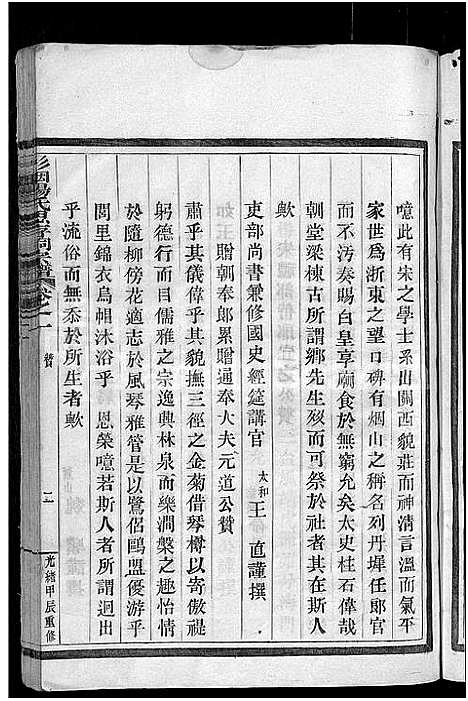 噫此有宋之學士系出關西貌莊而神清言溫而氣平
家世爲浙東之望口碑有烟山之稱名列丹墀任郎官
而不汚奏賜白皇享廟食於無窮允矣太史柱石偉哉
朝堂梁棟古所謂鄉先生歿而可祭於社者其在斯人
歟
吏部尚書兼修國史經筵講官 太和王 直謹撰
贈朝奉郎累贈通奉大夫元道公贊
肅乎其儀偉乎其貌撫三徑之金菊借琴樽以寄傲禔
躬德行而目儒雅之宗逸興林泉而樂澗槃之趣怡情
於隨柳傍花適志於風琴雅管是以鷺侶鷗盟優游乎
閭里錦衣烏帽沐浴乎 恩榮噫若斯人者所謂迥出
乎流俗而無忝於所生者歟
楊氏
宗譜
卷之一
贊
光緒甲辰重修